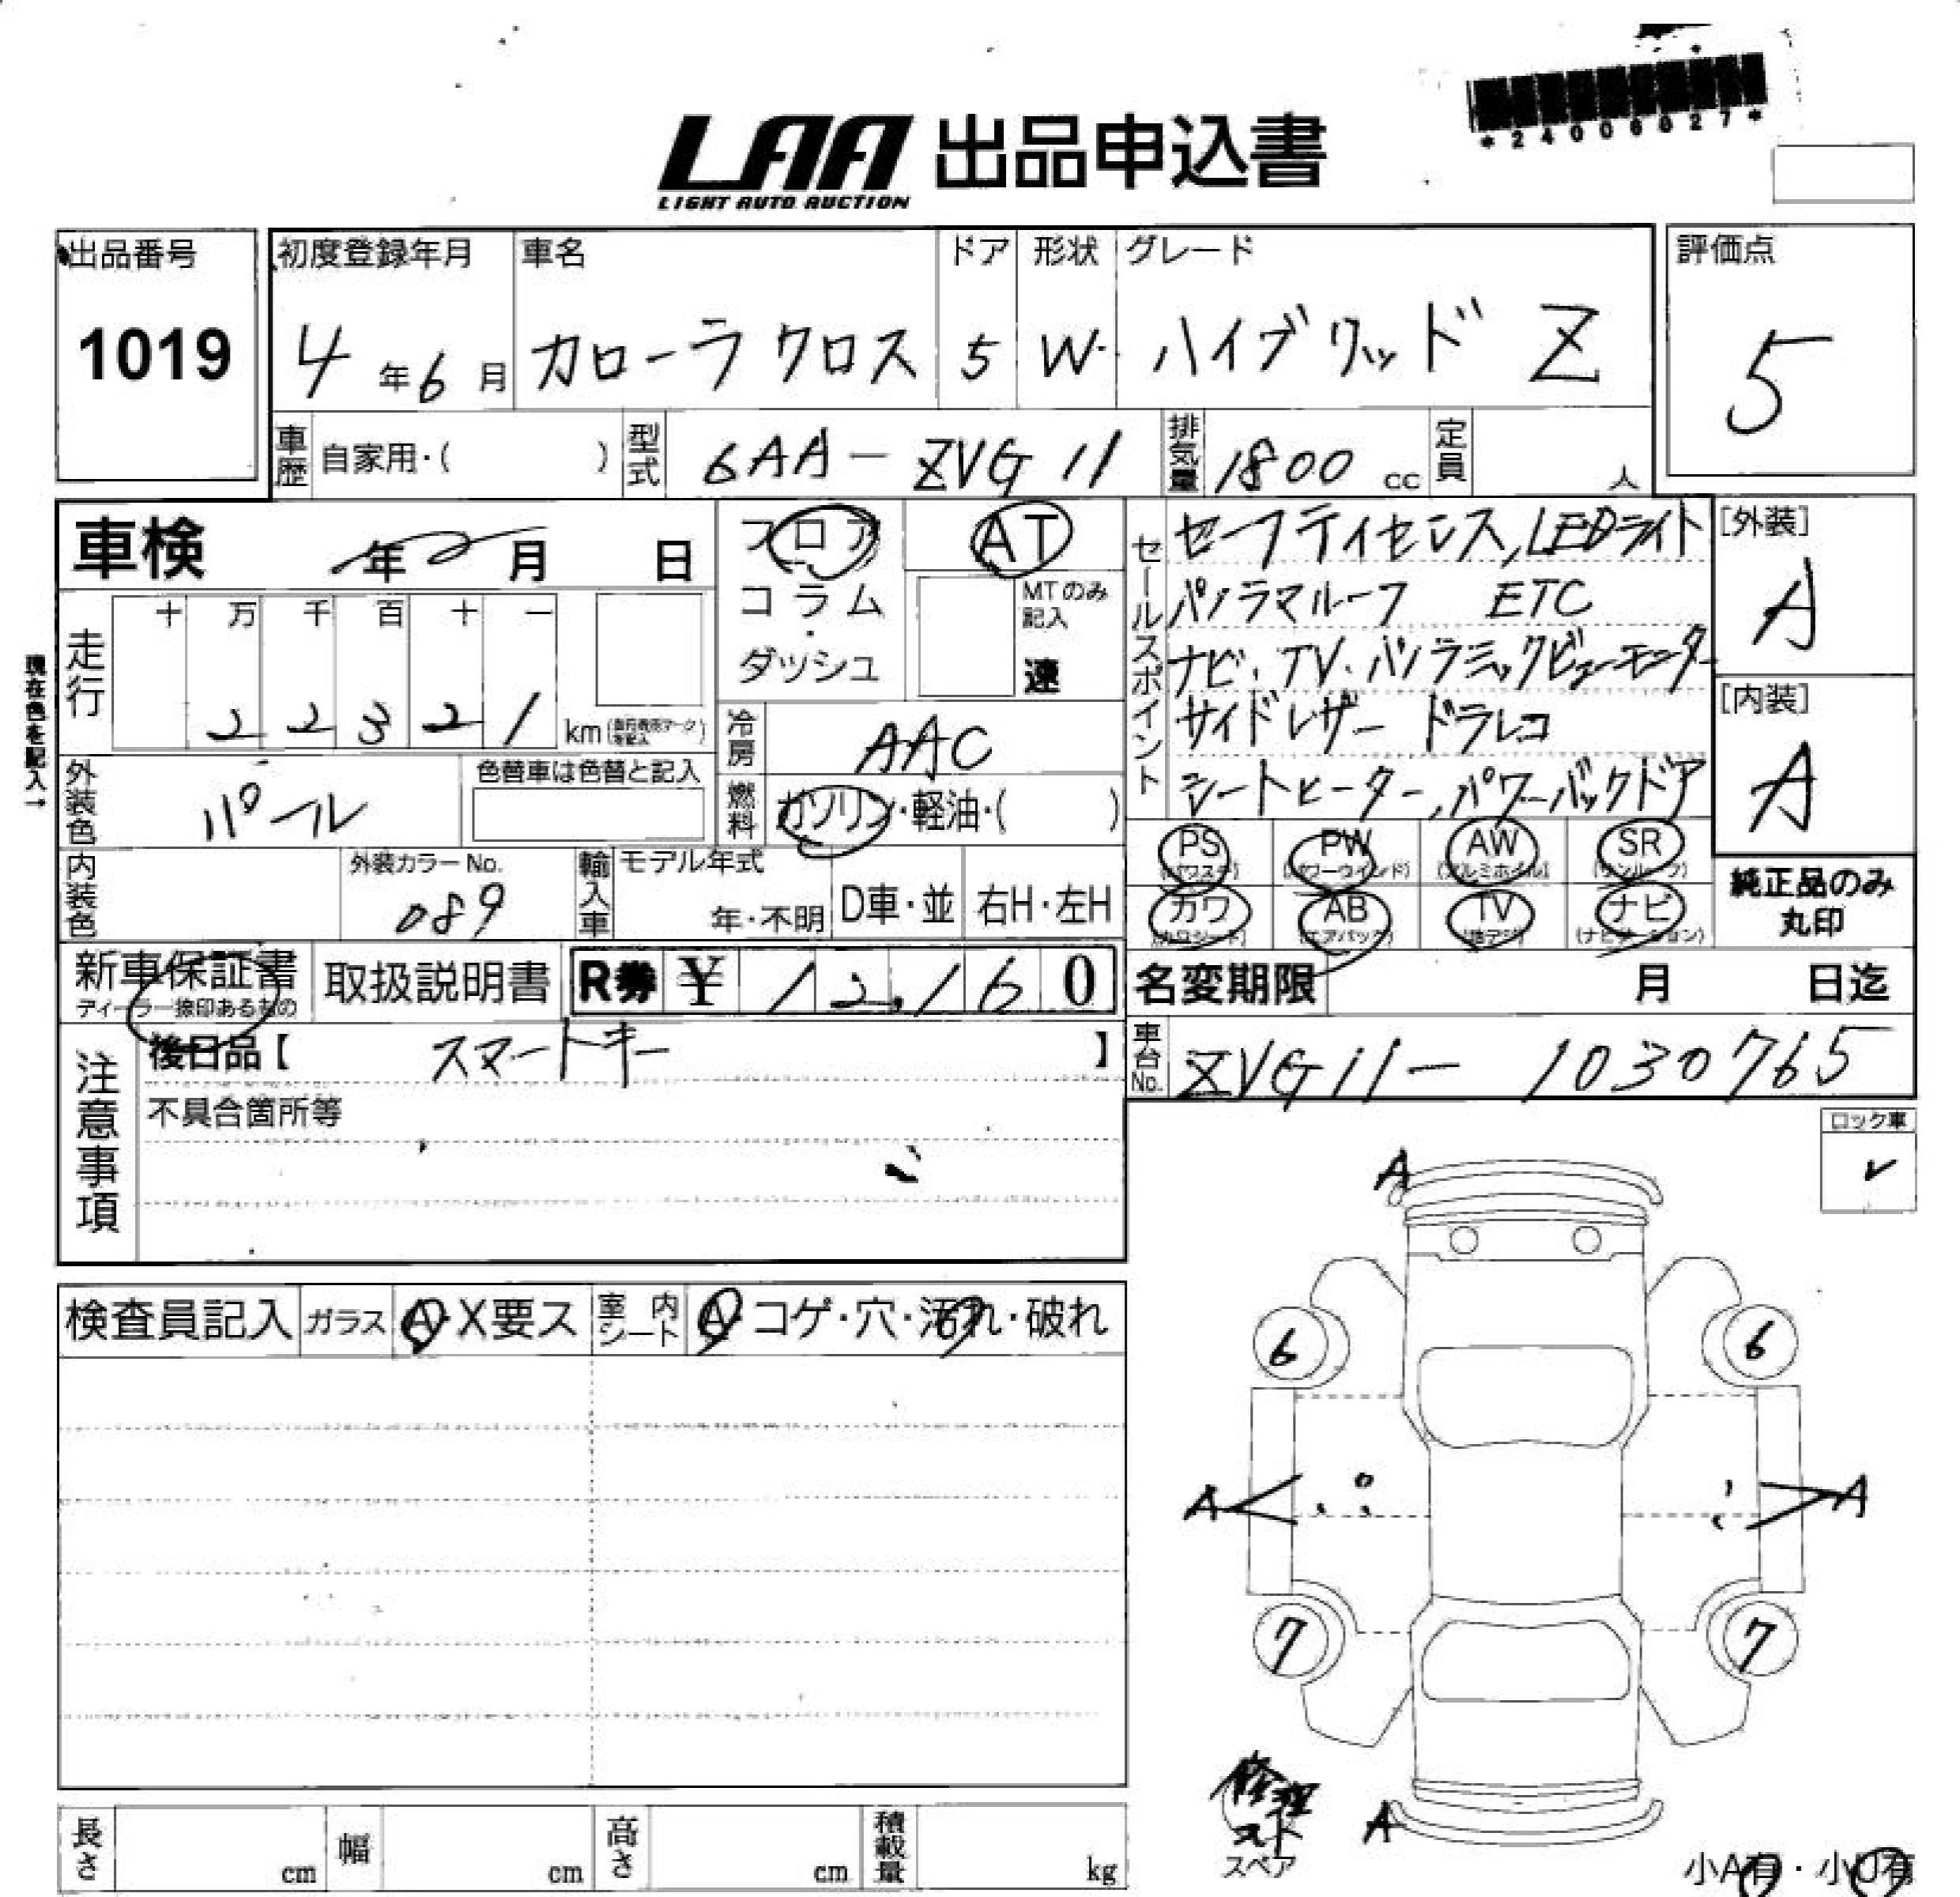 *24006027*
LAA 出品申込書
LIGHT AUTO AUCTION
出品番号 初度登録年月 車名 ドア 形状 グレード 評価点
1019 4年6月 カローラクロス 5 W ハイブリッド Z 5
車歴 自家用・( ) 型式 6AA-ZVG11 排気量 1800cc 定員 人
車検 年 月 日 フロア AT
コラム・ダッシュ MTのみ記入 速
セールスポイント
セーフティセンス,LEDライト
パノラマルーフ ETC
ナビ・TV・パノラミックビューモニター
サイドレザー ドラレコ
シートヒーター,パワーバックドア
[外装]
A
[内装]
A
現在色を記入→
走行 十 万 千 百 十 一
2 2 3 2 1 km
冷房 AAC
燃料 ガソリン・軽油・( )
外装色 パール 色替車は色替と記入
PS PW AW SR
(パワステ) (パワーウインド) (アルミホイル) (サンルーフ)
カワ AB TV ナビ
(カワシート) (エアバック) (地デジ) (ナビゲーション)
純正品のみ
丸印
内装色 外装カラーNo. 089 輸入車 モデル年式 年・不明 D車・並 右H・左H
新車保証書 取扱説明書 R券 ¥ 12,160 名変期限 月 日迄
ディーラー捺印あるもの
車台No. ZVG11-1030765
注意事項
後日品【 スマートキー 】
不具合箇所等
ロック車
✓
検査員記入 ガラス A・X要ス 室内シート A・コゲ・穴・汚れ・破れ
A
6 6
A A
7 7
A
スペア
小A有・小U有
長さ cm 幅 cm 高さ cm 積載量 kg